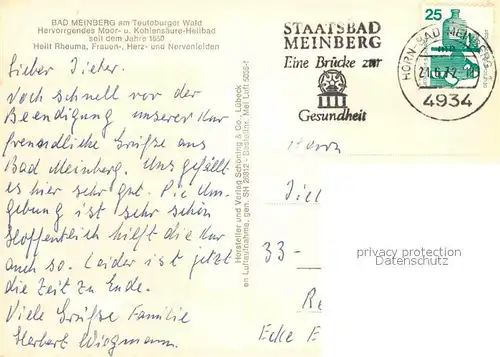 BAD MEINBERG am Teutoburger Wald
Hervorrgendes Moor- u. Kohlensäure-Heilbad
seit dem Jahre 1850
Heilt Rheuma, Frauen-, Herz- und Nervenleiden
Lieber Dieter.
Noch schnell vor der
Beendigung unserer Kur
freundliche Grüße aus
Bad Meinberg. Uns gefällt
es hier sehr gut. Die Um-
gebung ist sehr schön
Hoffentlich hilft die Kur
auch so. Leider ist jetzt
die Zeit zu Ende.
Viele Grüße Familie
Herbert Wiegmann.
Hersteller und Verlag Schöning & Co., Lübeck
en Luftaufnahme, gen. SH 26812 - Bestellnr. Mei Luft 5056-1
STAATSBAD
MEINBERG
Eine Brücke zur
Gesundheit
25
HORN-BAD MEINBERG
4934
Herrn
33-
Ecke E
privacy protection
Datenschutz